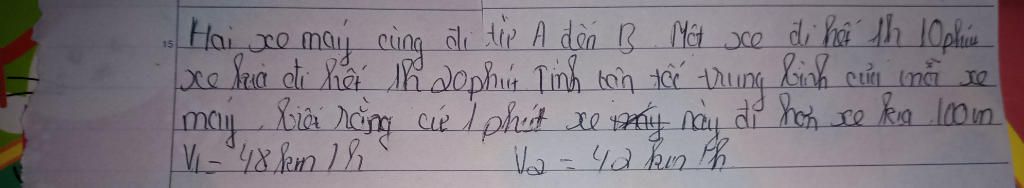 15 Hai xe máy cùng đi từ A đến B. Một xe đi hết 1h 10 phút
xe kia đi hết 1h 20 phút Tính vận tốc trung bình của mỗi xe
máy. Biết rằng cứ 1 phút xe này đi hơn xe kia 100m
V1 = 48 km/h V2 = 42 km/h